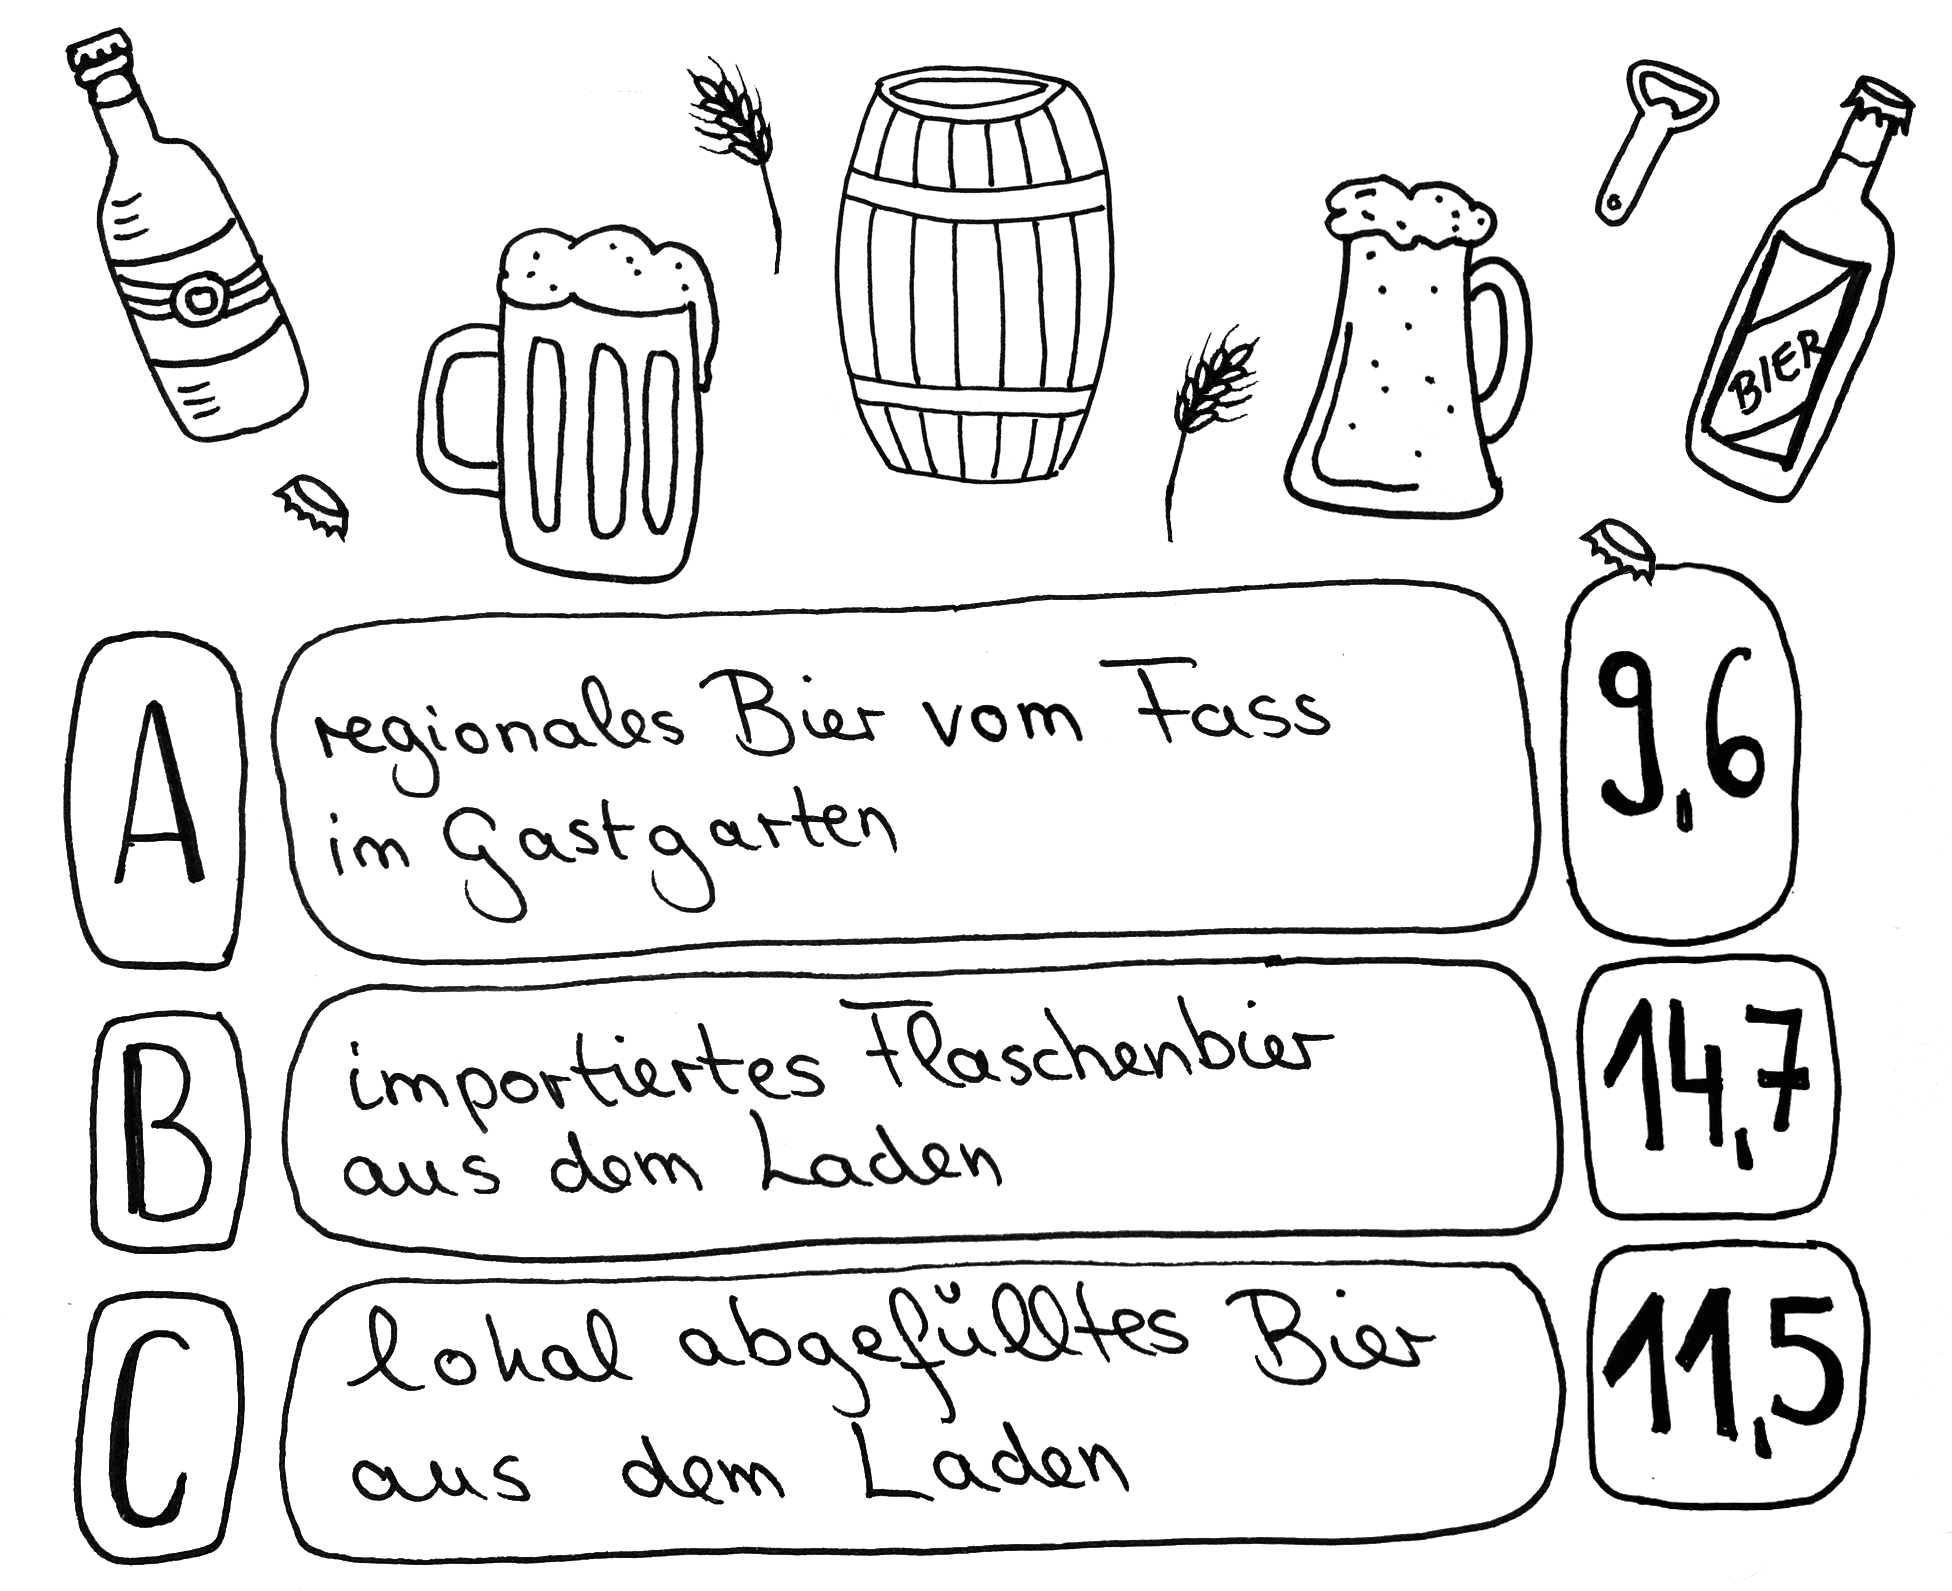 BIER
A
regionales Bier vom Fass
im Gastgarten
9,6
B
importiertes Flaschenbier
aus dem Laden
14,7
C
lokal abgefülltes Bier
aus dem Laden
11,5